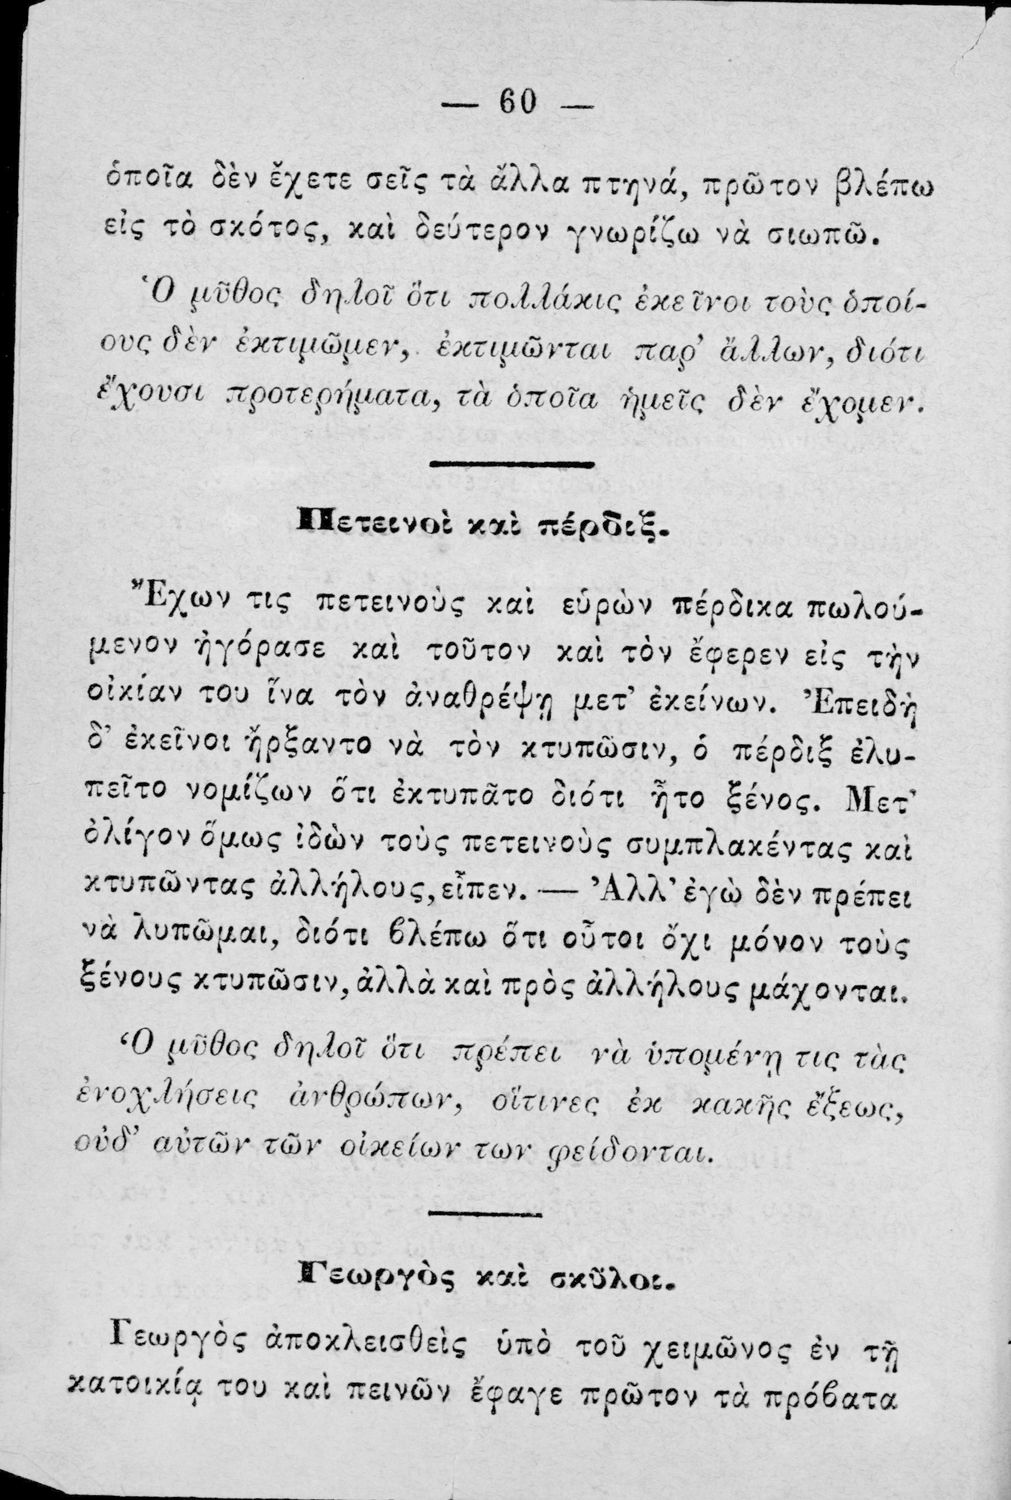 — 60 —
ὁποῖα δὲν ἔχετε σεῖς τὰ ἄλλα πτηνά, πρῶτον βλέπω
εἰς τὸ σκότος, καὶ δεύτερον γνωρίζω νὰ σιωπῶ.
Ὁ μῦθος δηλοῖ ὅτι πολλάκις ἐκεῖνοι τοὺς ὁποί-
ους δὲν ἐκτιμῶμεν, ἐκτιμῶνται παρ' ἄλλων, διότι
ἔχουσι προτερήματα, τὰ ὁποῖα ἡμεῖς δὲν ἔχομεν.
Πετεινοὶ καὶ πέρδιξ.
Ἔχων τις πετεινοὺς καὶ εὑρὼν πέρδικα πωλού-
μενον ἠγόρασε καὶ τοῦτον καὶ τὸν ἔφερεν εἰς τὴν
οἰκίαν του ἵνα τὸν ἀναθρέψῃ μετ' ἐκείνων. Ἐπειδὴ
δ' ἐκεῖνοι ἤρξαντο νὰ τὸν κτυπῶσιν, ὁ πέρδιξ ἐλυ-
πεῖτο νομίζων ὅτι ἐκτυπᾶτο διότι ἦτο ξένος. Μετ'
ὀλίγον ὅμως ἰδὼν τοὺς πετεινοὺς συμπλακέντας καὶ
κτυπῶντας ἀλλήλους, εἶπεν. — Ἀλλ' ἐγὼ δὲν πρέπει
νὰ λυπῶμαι, διότι βλέπω ὅτι οὗτοι ὄχι μόνον τοὺς
ξένους κτυπῶσιν, ἀλλὰ καὶ πρὸς ἀλλήλους μάχονται.
Ὁ μῦθος δηλοῖ ὅτι πρέπει νὰ ὑπομένῃ τις τὰς
ἐνοχλήσεις ἀνθρώπων, οἵτινες ἐκ κακῆς ἕξεως,
οὐδ' αὐτῶν τῶν οἰκείων των φείδονται.
Γεωργὸς καὶ σκῦλοι.
Γεωργὸς ἀποκλεισθεὶς ὑπὸ τοῦ χειμῶνος ἐν τῇ
κατοικίᾳ του καὶ πεινῶν ἔφαγε πρῶτον τὰ πρόβατα